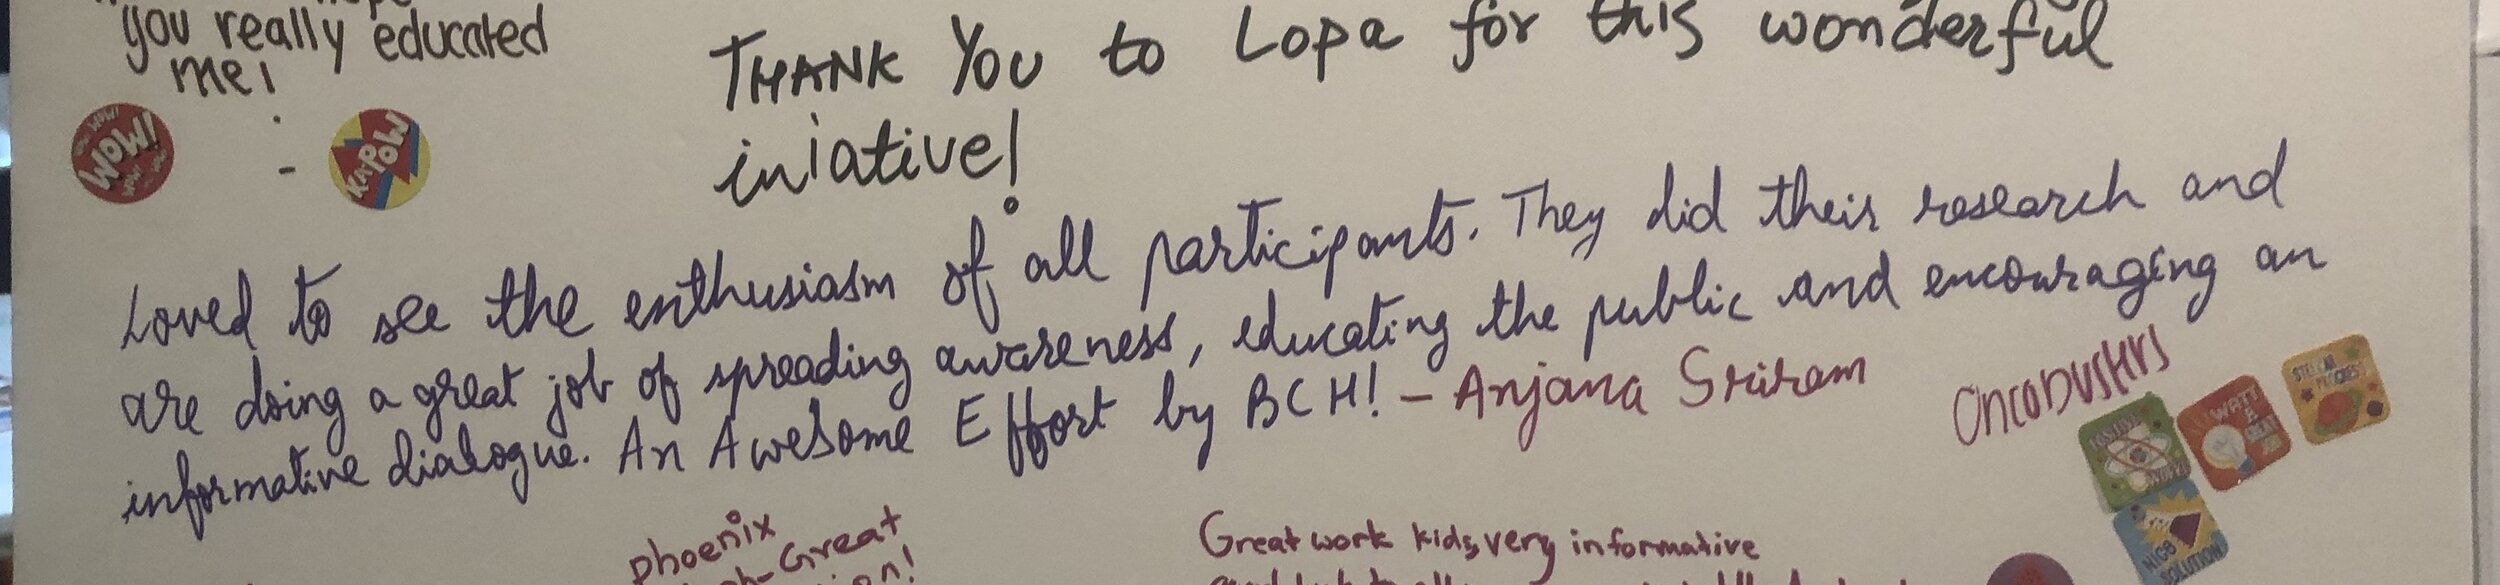 you really educated
me!
WOW!
KAPOW
THANK YOU to Lopa for this wonderful
iniative!
Loved to see the enthusiasm of all participants. They did their research and
are doing a great job of spreading awareness, educating the public and encouraging an
informative dialogue. An Awesome Effort by BCH! - Anjana Sriram
WATT A
NICE SOLUTION
phoenix
Great
Great work kids, very informative